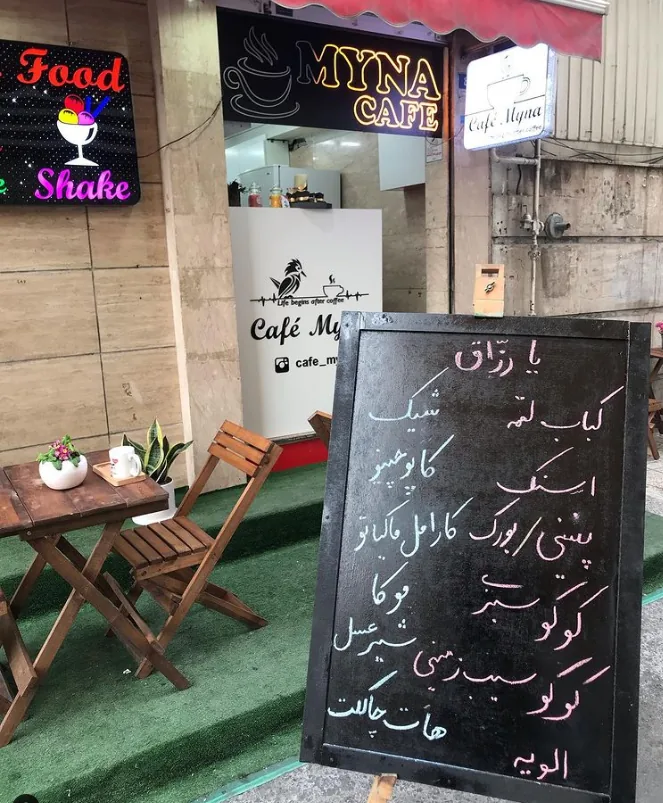 Food
Shake
MYNA
CAFE
Café Myna
Life begins after coffee
Café My
cafe_my
یا رزّاق
کباب لقمه
اسنک
پیتزا/بورک
کوکو سبزی
کوکو سیب زمینی
الویه
شیک
کاپوچینو
کارامل ماکیاتو
موکا
شیر عسل
هات چاکلت